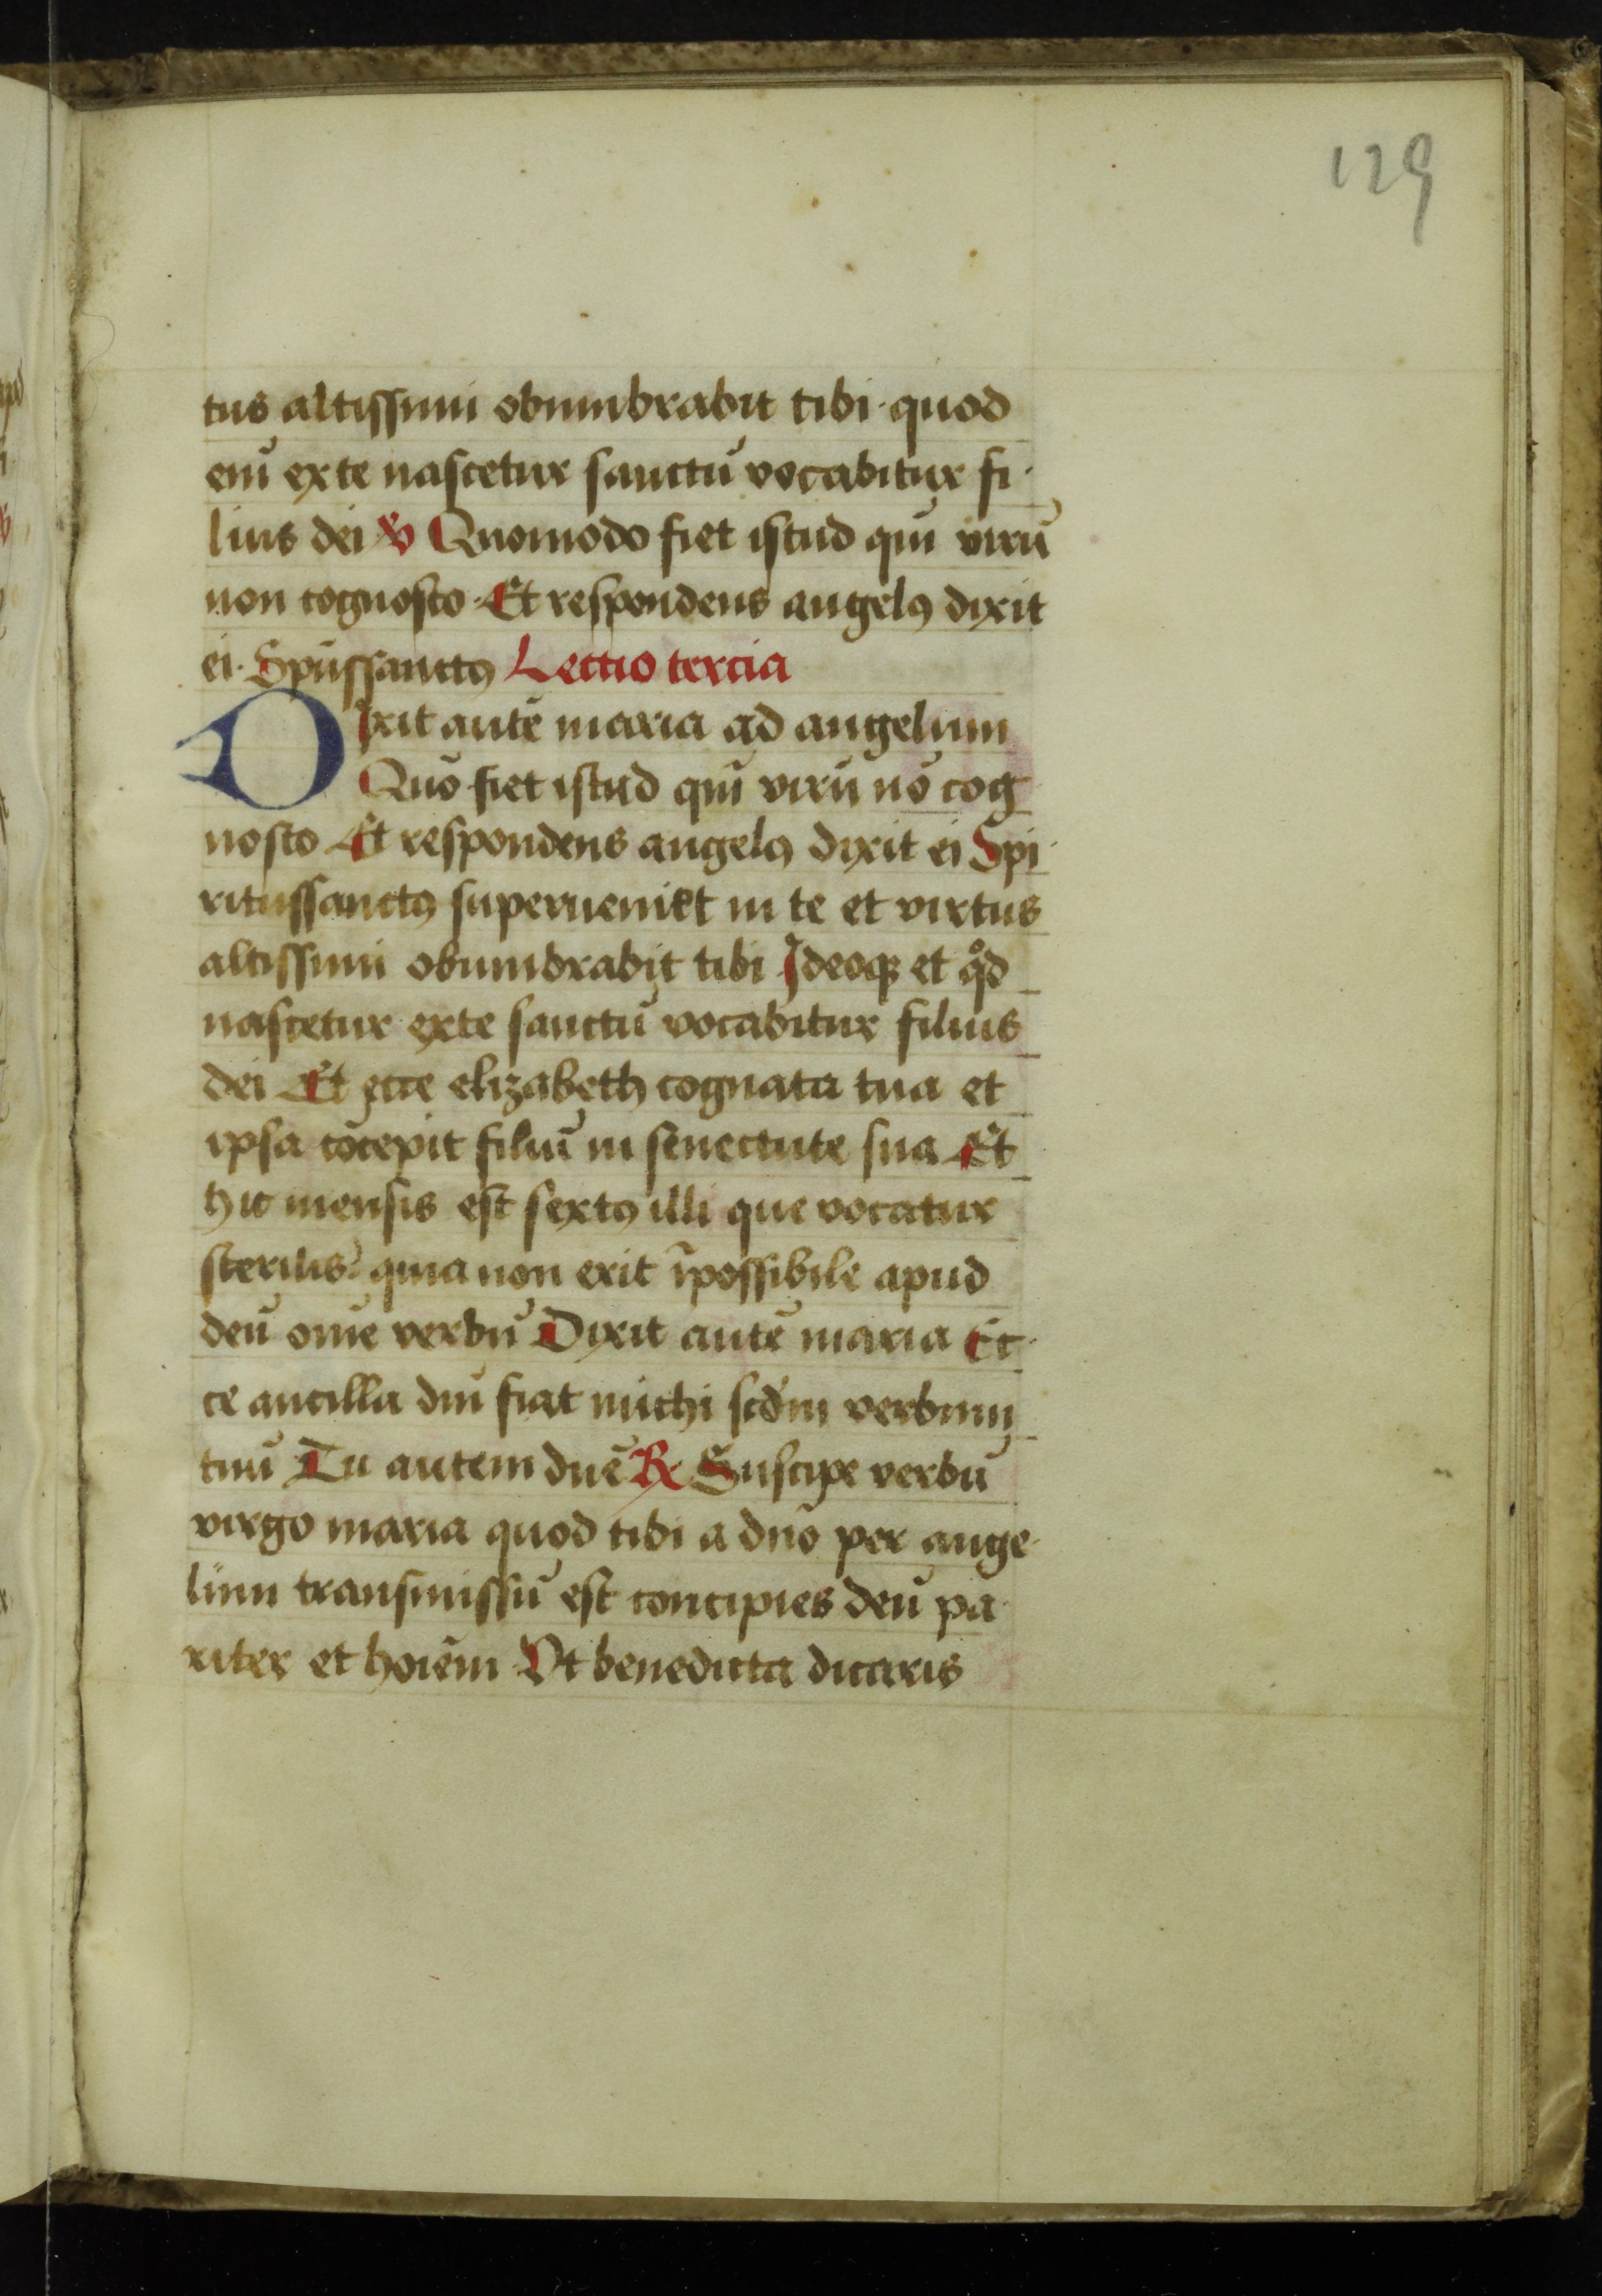 129
tus altissimi obumbrabit tibi · quod
eni̅ ex te nascetur sanctu̅ vocabitur fi-
lius dei ℣ Quomodo fiet istud qui̅ viru̅
non cognosco · Et respondens angelꝰ dixit
ei · Spu̅ssanctꝰ Lectio tercia
Dixit aute̅ maria ad angelum
Quo̅ fiet istud qui̅ viru̅ no̅ cog
nosco Et respondens angelꝰ dixit ei Spi-
ritussanctꝰ superueniet in te et virtus
altissimi obumbrabit tibi Ideoqꝫ et qͦd
nascetur exte sanctu̅ vocabitur filius
dei Et ecce elizabeth cognata tua et
ipsa co̅cepit filiu̅ in senectute sua Et
hic mensis est sextꝰ illi que vocatur
sterilis : quia non erit i̅possibile apud
deu̅ om̅e verbu̅ Dixit aute̅ maria Ec-
ce ancilla dn̅i fiat michi scd̅m verbum
tuu̅ Tu autem dn̅e ℟ Suscipe verbu̅
virgo maria quod tibi a dn̅o per ange-
lum transmissu̅ est concipies deu̅ pa-
riter et hoi̅em Vt benedicta dicaris